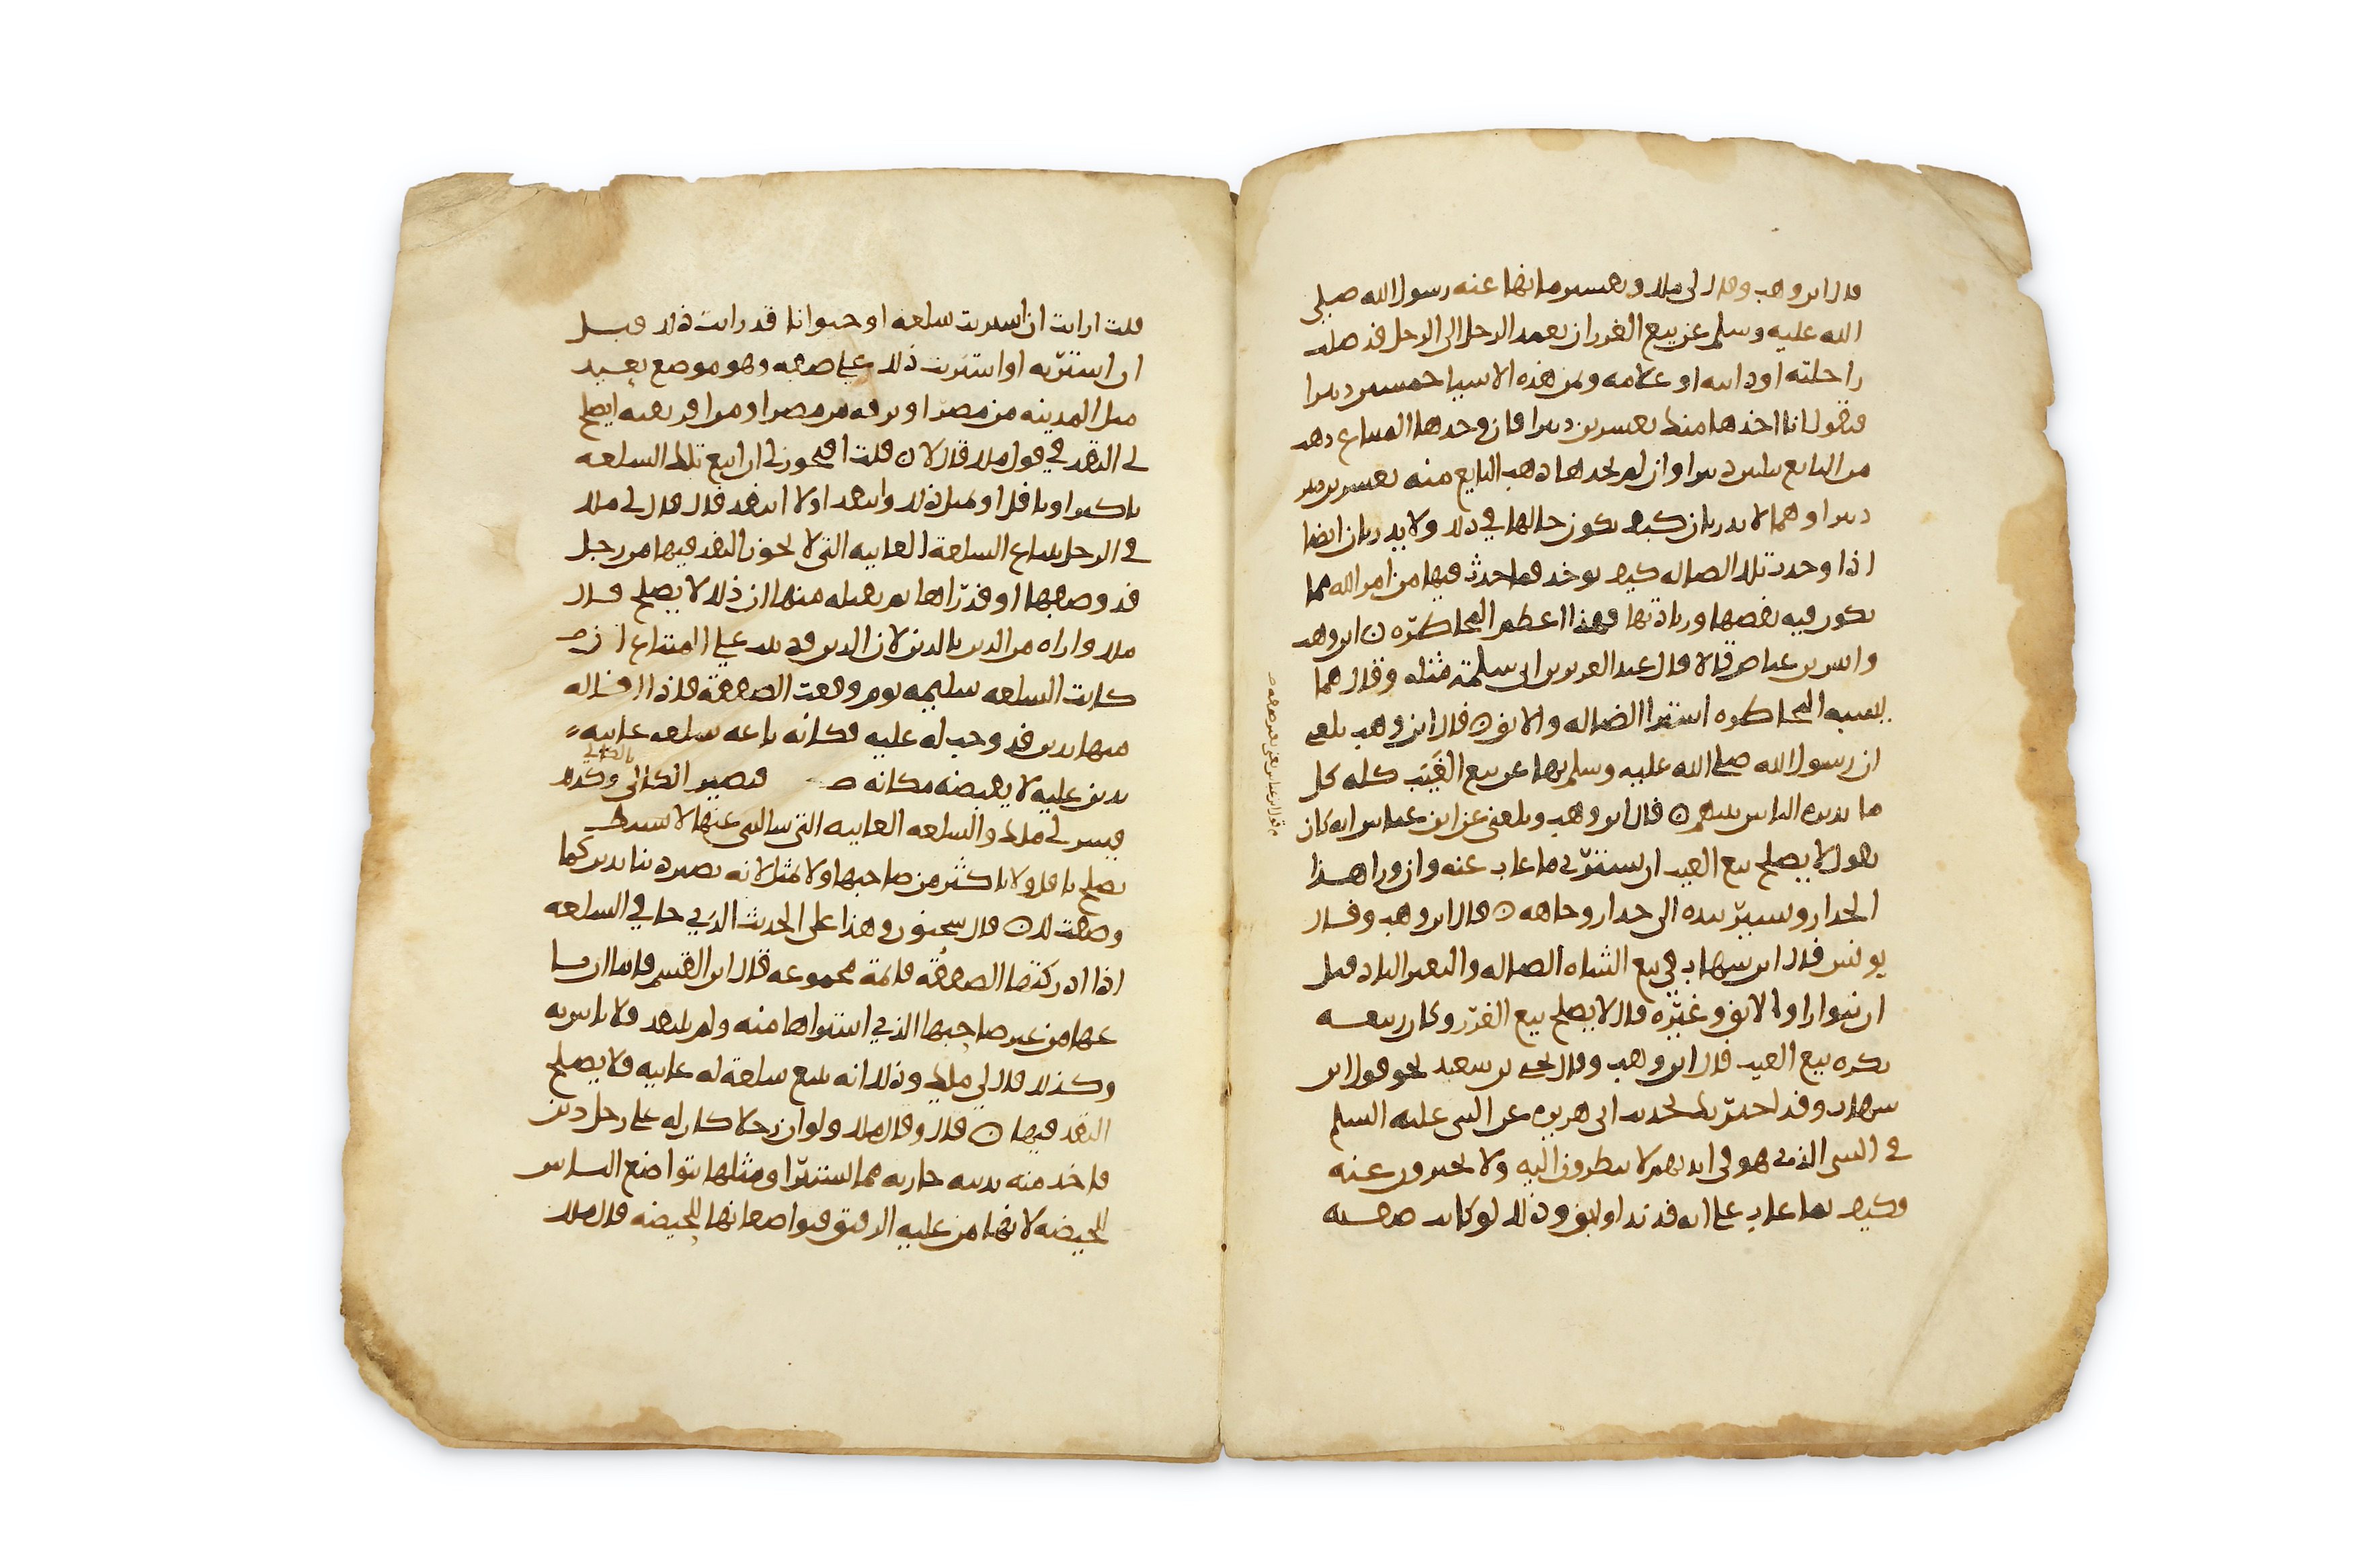 قال ابن وهب وقال لي ملك وتفسير ما نها عنه رسول الله صلى
الله عليه وسلم عن بيع الغرر ان يعمد الرجل الى الرجل قد ضلت
راحلته او دابته او غلامه وثمن هذه الاشيا خمسين دينرا
فيقول انا اخذها منك بعشرين دينرا فان وجدها المبتاع ذهب
من البايع بثلثين دينرا وان لم يجدها ذهب البايع منه بعشرين
دينرا وهما لا يدريان كيف يكون حالها في ذلك ولا يدريان ايضا
اذا وجدت تلك الضاله كيف توخذ وما حدث فيها من امر الله مما
يكون فيه نقصها وزيادتها فهذا اعظم المخاطره ابن وهب
وانس بن عياض قالا قال عبد العزيز بن ابي سلمة مثله وقال مما
يشبه المخاطره اشترا الضاله والابق قال ابن وهب بلغني
ان رسول الله صلى الله عليه وسلم نها عن بيع الغيب كله كل
ما يديره الناس بينهم قال ابن وهب وبلغني عن ابن عباس انه كان
يقول لا يصلح بيع الغيب ان يشتري ما غاب عنه وان ورا هذا
الجدار ويشير بيده الى جدار وجاهه قال ابن وهب وقال
يونس قال ابن شهاب في بيع الشاه الضاله والبعير الناد قبل
ان يتوارا او الابق وغيره قال لا يصلح بيع الغرر وكان ربيعه
يكره بيع الغيب قال ابن وهب وقال يحي بن سعيد نحو قول ابن
شهاب وقد احتج ملك بحديث ابي هريره عن النبي عليه السلم
في الشي الذي هو في ايديهم لا ينظرون اليه ولا يخبرون عنه
وكيف بما غاب على انه قد ند او ابق وذلك لو كانت صفته
قلت ارايت ان اشتريت سلعه او حيوانا قد رايت ذلك قبل
ان اشتريه او اشتريت ذلك على صفه وهو موضع بعيد
مثل المدينه من مصر او برقه من مصر او من افريقيه ايصلح
لي النقد في قول ملك قال لا قلت افيجوز لي ان ابيع تلك السلعه
باكثر او باقل او بمثل ذلك وانتقد او لا انتقد قال قال لي ملك
في الرجل يبتاع السلعة الغايبه التي لا يجوز النقد فيها من رجل
قد وصفها او قد راها ثم يقيله منها ان ذلك لا يصلح قال
ملك واراه من الدين بالدين لان الدين قد ثبت على المبتاع ان
كانت السلعه سليمه يوم وقعت الصفقة فاذا اقاله
منها بدين قد وجب له عليه فكانه باعه سلعه غايبه
بدين عليه لا يقبضه مكانه فيصير الكالي وكذلك
بالكالي
فسر لي ملك والسلعه الغايبه التي سالتني عنها لا
يصلح باقل ولا باكثر من صاحبها ولا بمثل لانه يصير دينا بدين كما
وصفت لك قال سحنون وهذا على الحديث الذي جا في السلعه
اذا ادركتها الصفقة قايمة مجموعه قال ابن القسم فاما ان
عها من غير صاحبها الذي اشتراها منه ولم ينتقد فلا باس به
وكذلك قال لي ملك وذلك انه يبيع سلعة له غايبه فلا يصلح
النقد فيها قال وقال ملك ولو ان رجلا كان له على رجل دين
فاخذ منه بدينه جاريه مما يستبرا ومثلها يتواضع الناس
للحيضه لانها من علية الرقيق فتواضعانها للحيضه قال ملك